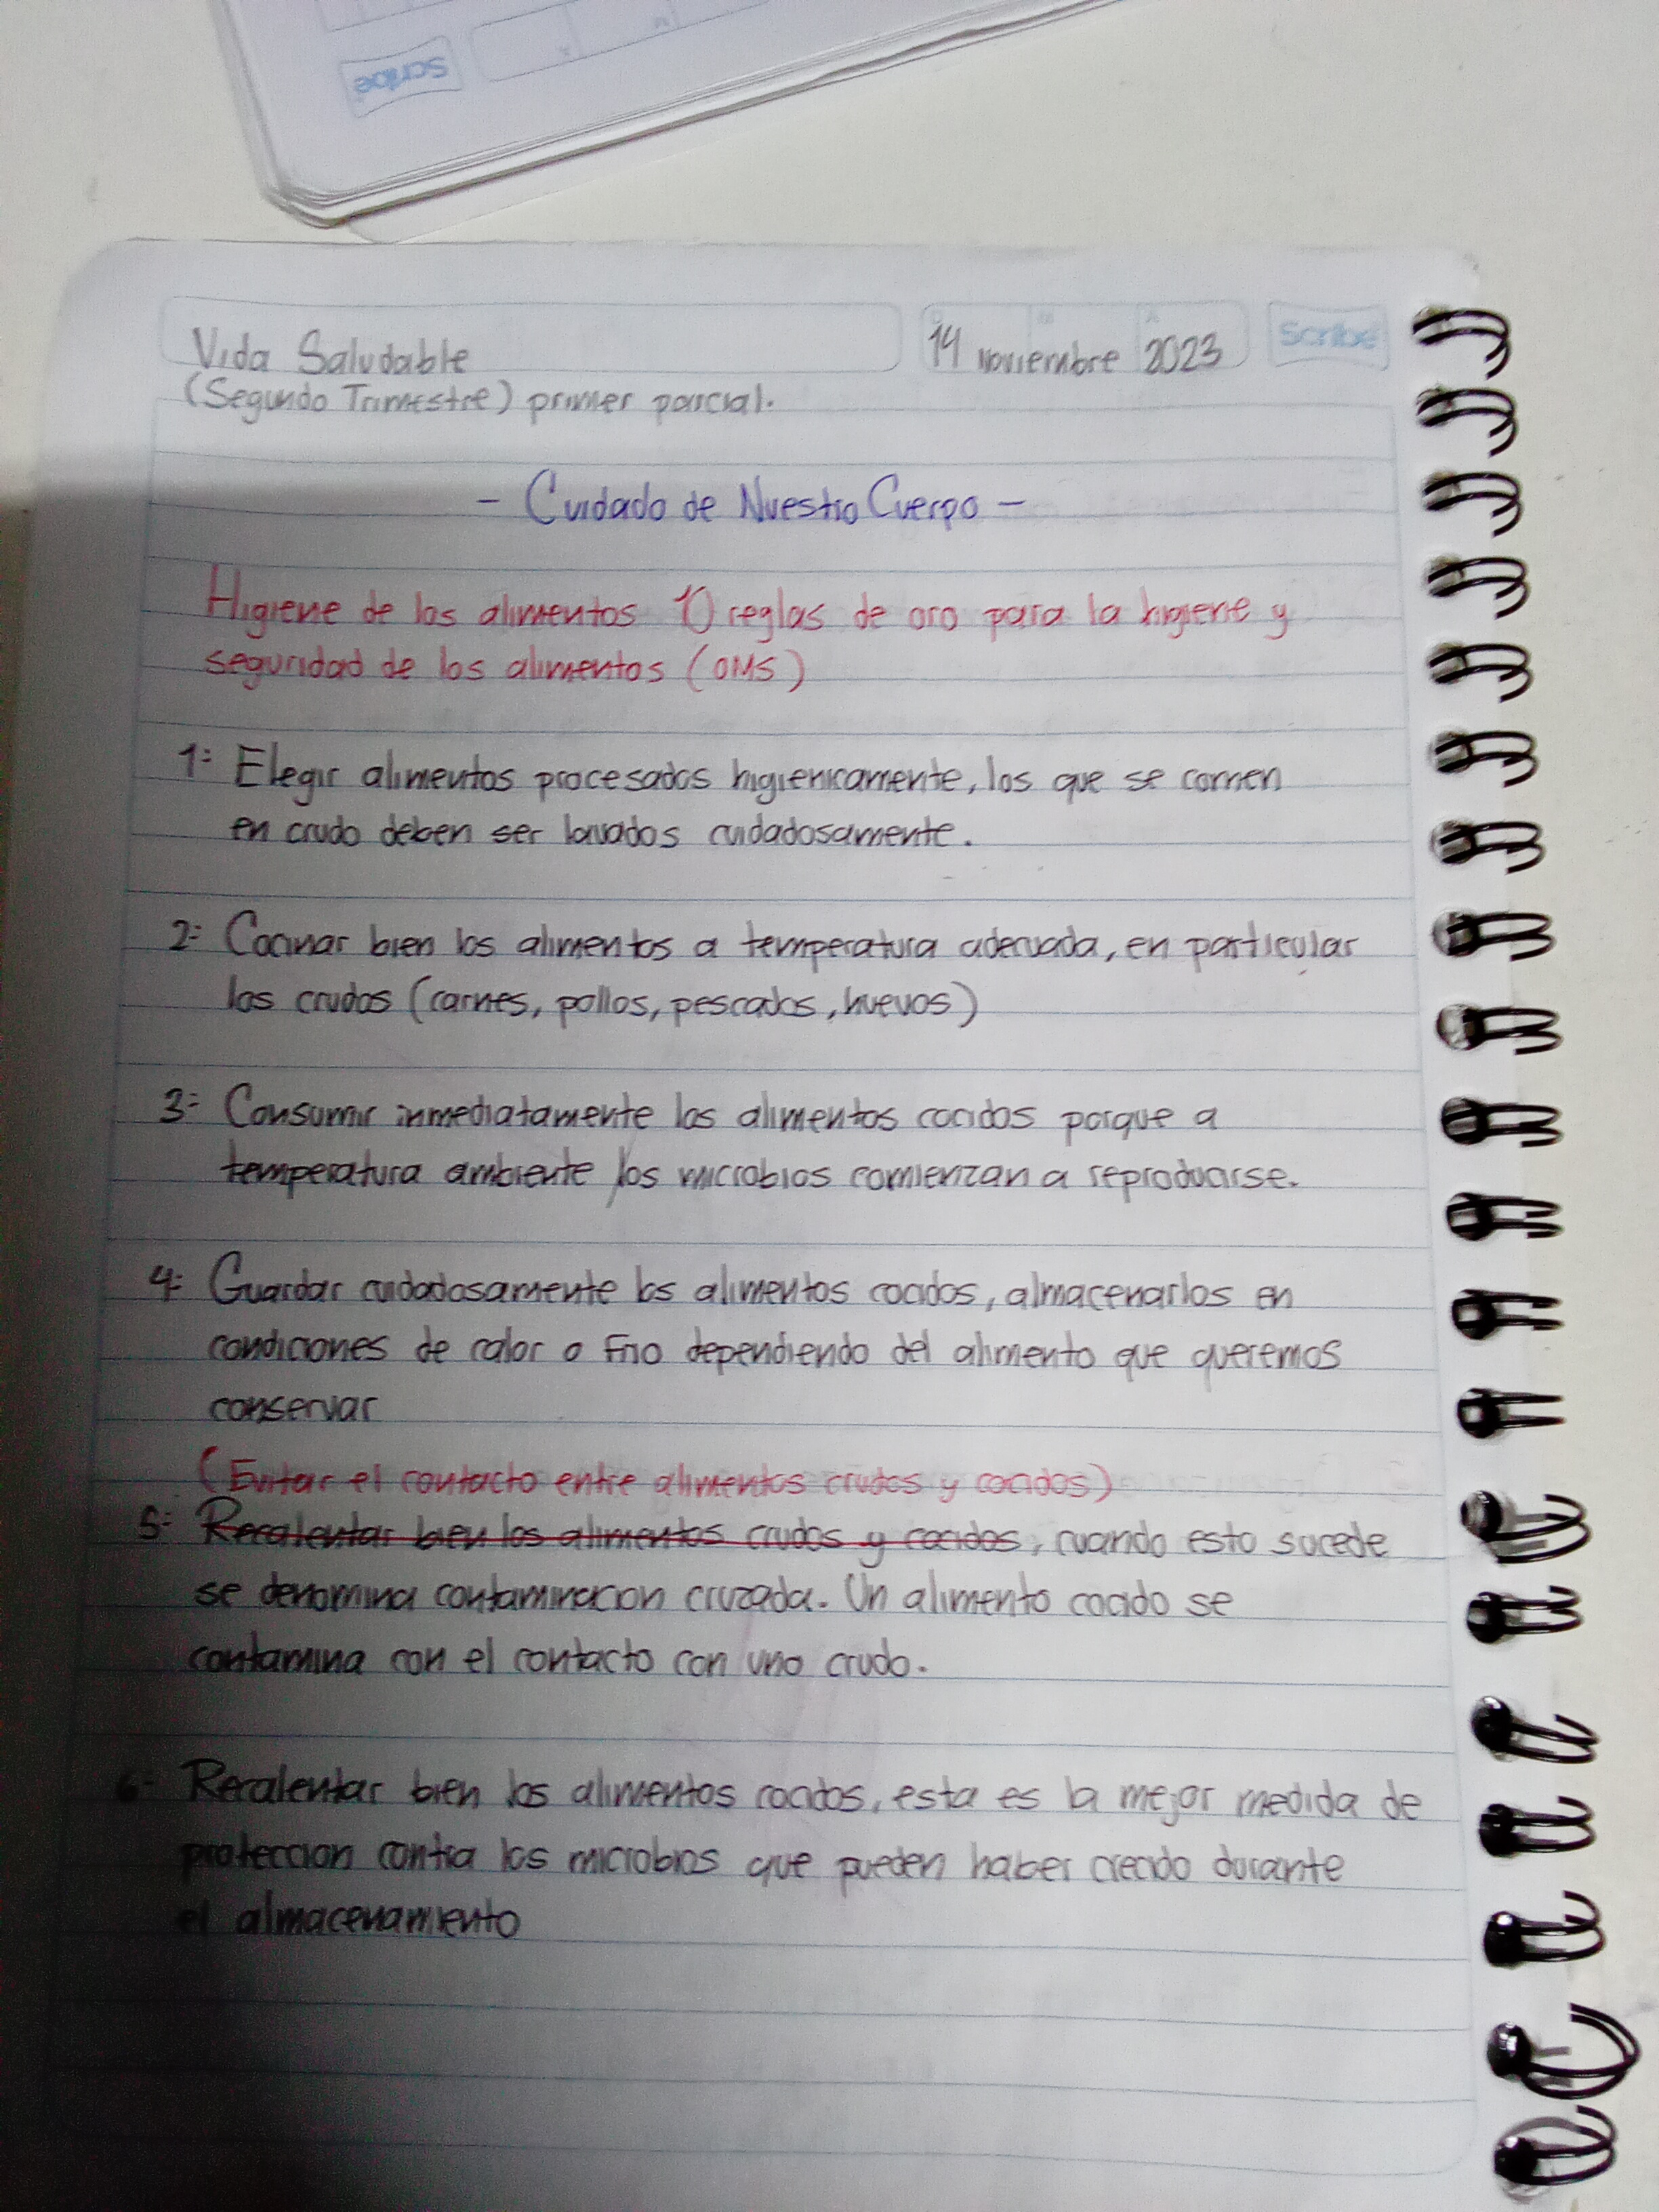 Scribe
Vida Saludable
14 noviembre 2023
Scribe
(Segundo Trimestre) primer parcial.
- Cuidado de Nuestro Cuerpo -
Higiene de los alimentos 10 reglas de oro para la higiene y
seguridad de los alimentos (OMS)
1= Elegir alimentos procesados higienicamente, los que se comen
en crudo deben ser lavados cuidadosamente.
2= Cocinar bien los alimentos a temperatura adecuada, en particular
los crudos (carnes, pollos, pescados, huevos)
3= Consumir inmediatamente los alimentos cocidos porque a
temperatura ambiente los microbios comienzan a reproducirse.
4= Guardar cuidadosamente los alimentos cocidos, almacenarlos en
condiciones de calor o frio dependiendo del alimento que queremos
conservar
(Evitar el contacto entre alimentos crudos y cocidos)
5= Recalentar bien los alimentos crudos y cocidos, cuando esto sucede
se denomina contaminacion cruzada. Un alimento cocido se
contamina con el contacto con uno crudo.
6- Recalentar bien los alimentos cocidos, esta es la mejor medida de
proteccion contra los microbios que pueden haber crecido durante
el almacenamiento